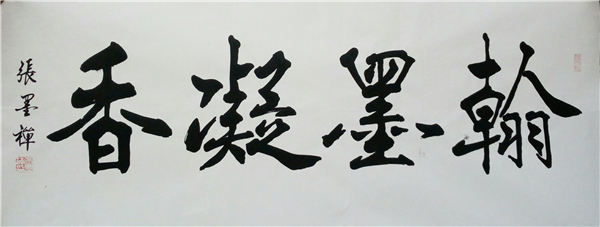 翰墨凝香
張墨禪